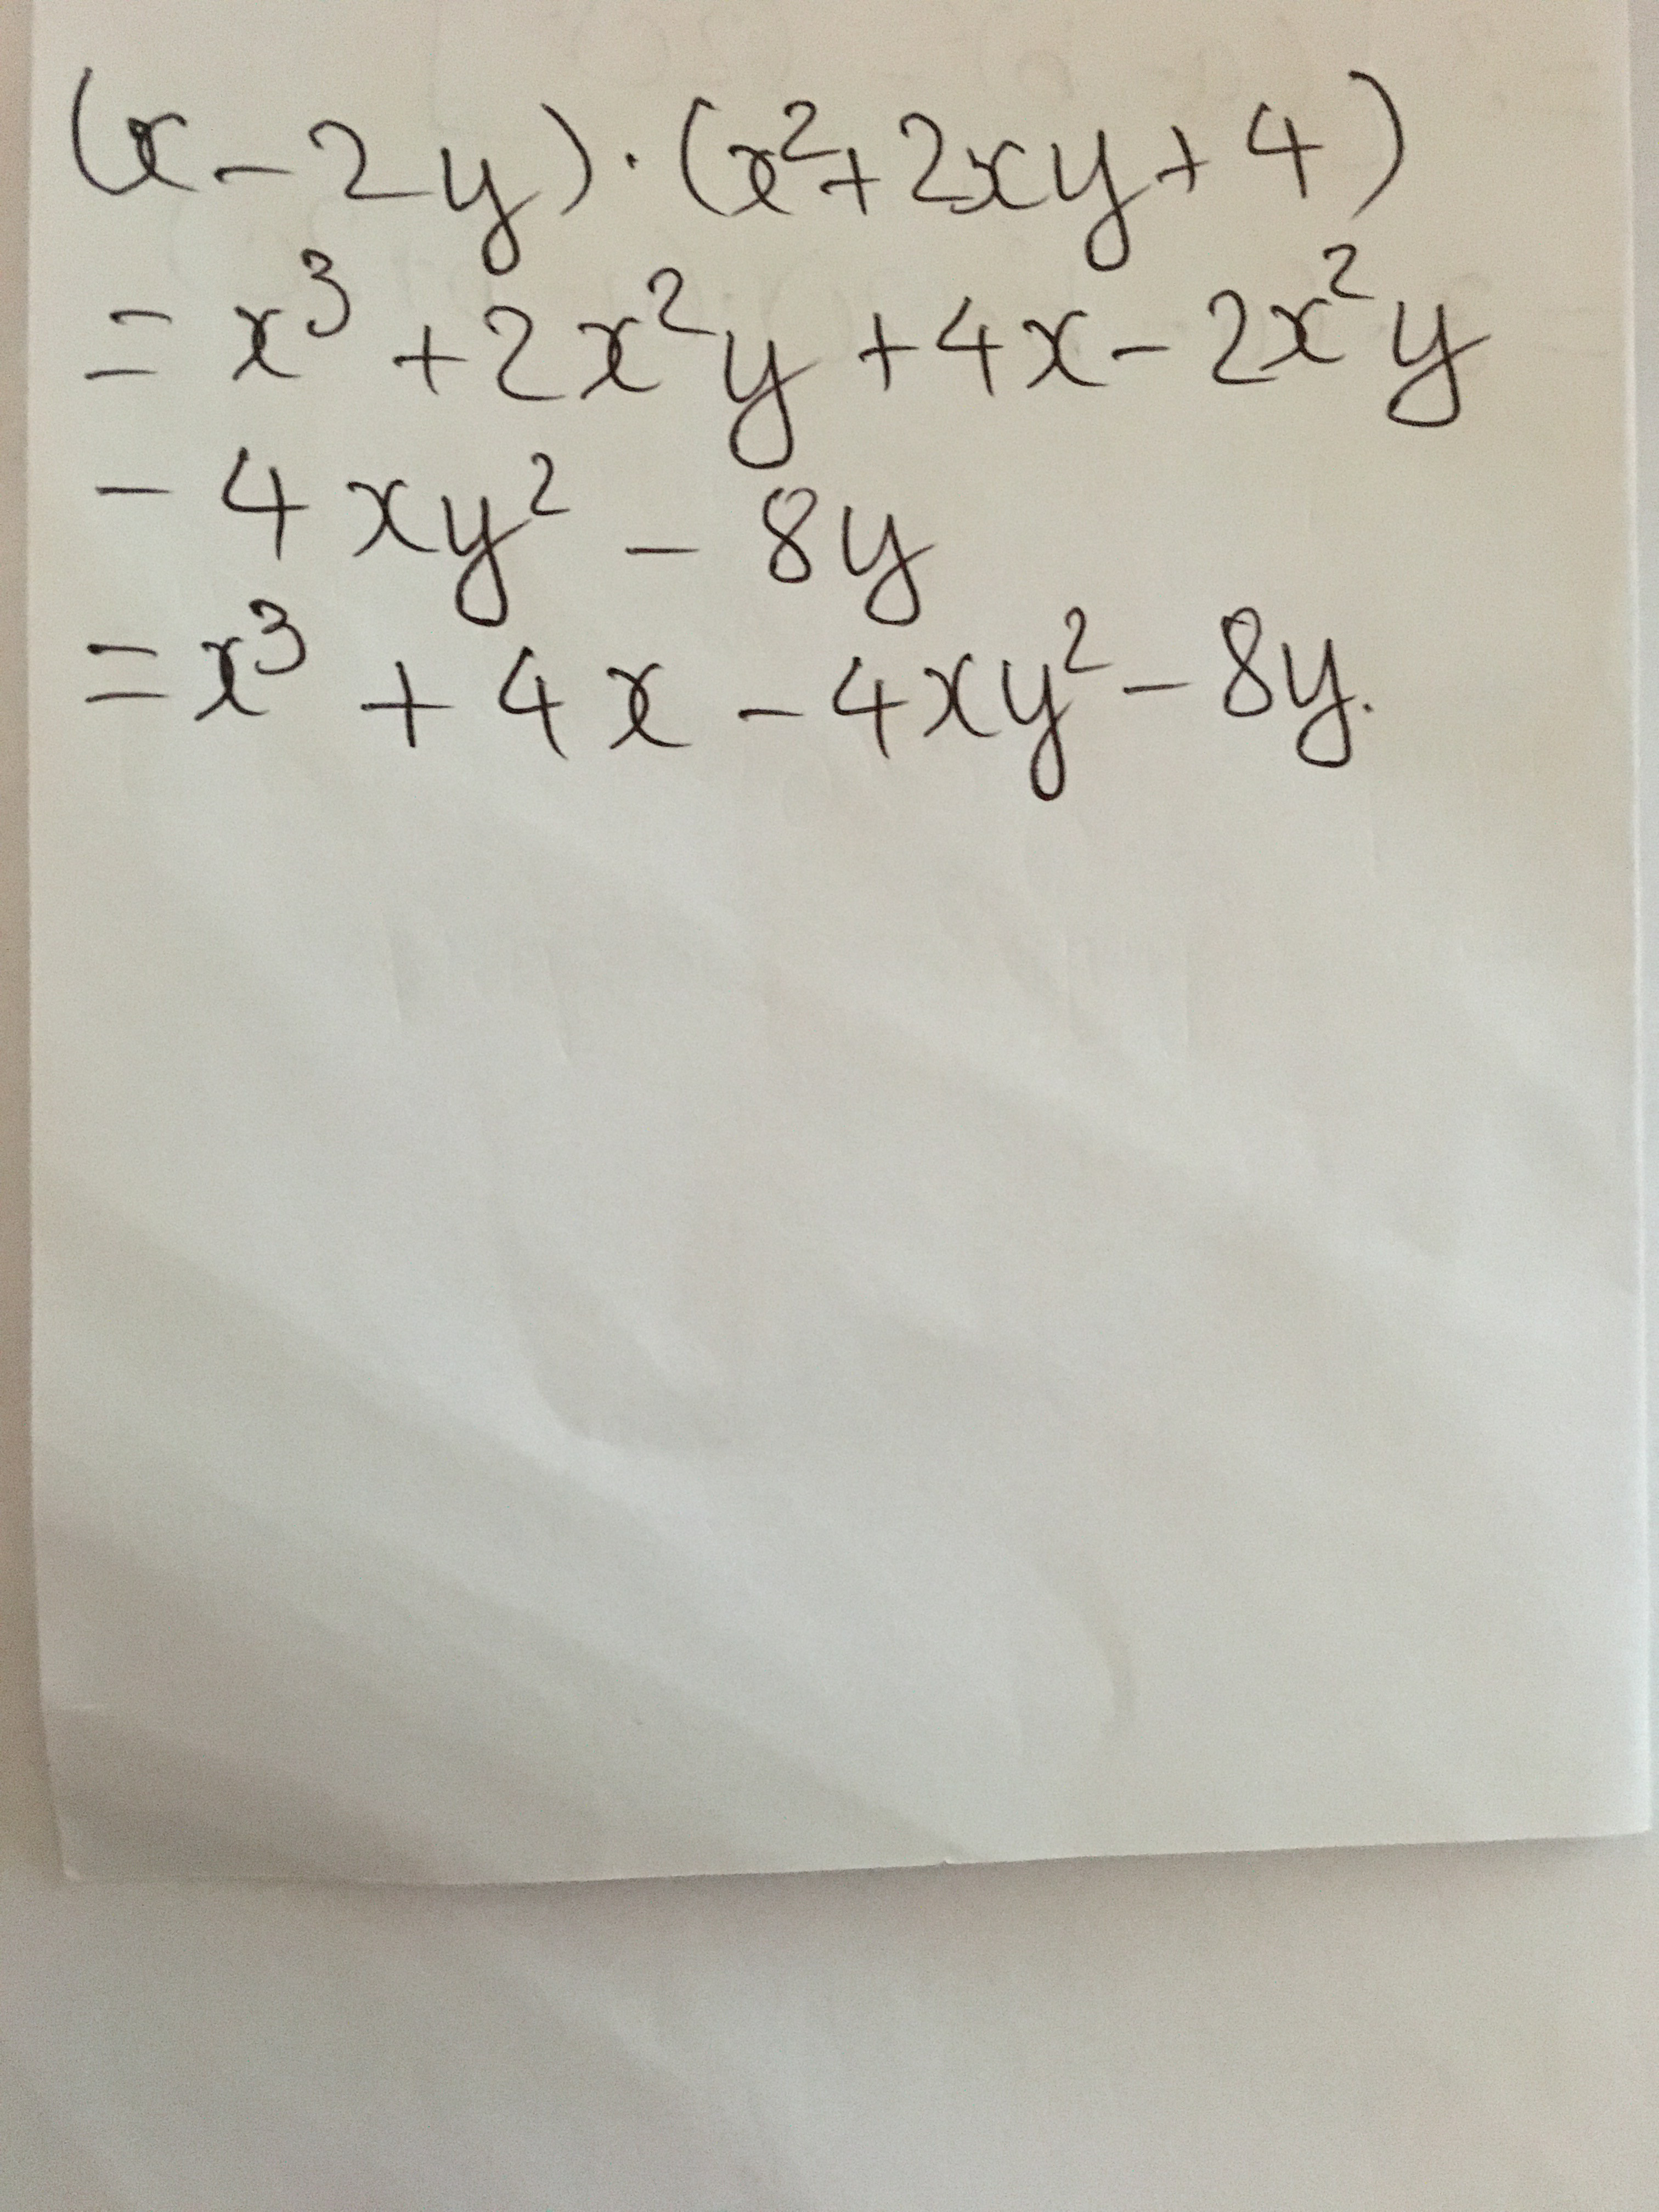 (x - 2y) · (x² + 2xy + 4)
= x³ + 2x²y + 4x - 2x²y
- 4xy² - 8y
= x³ + 4x - 4xy² - 8y.